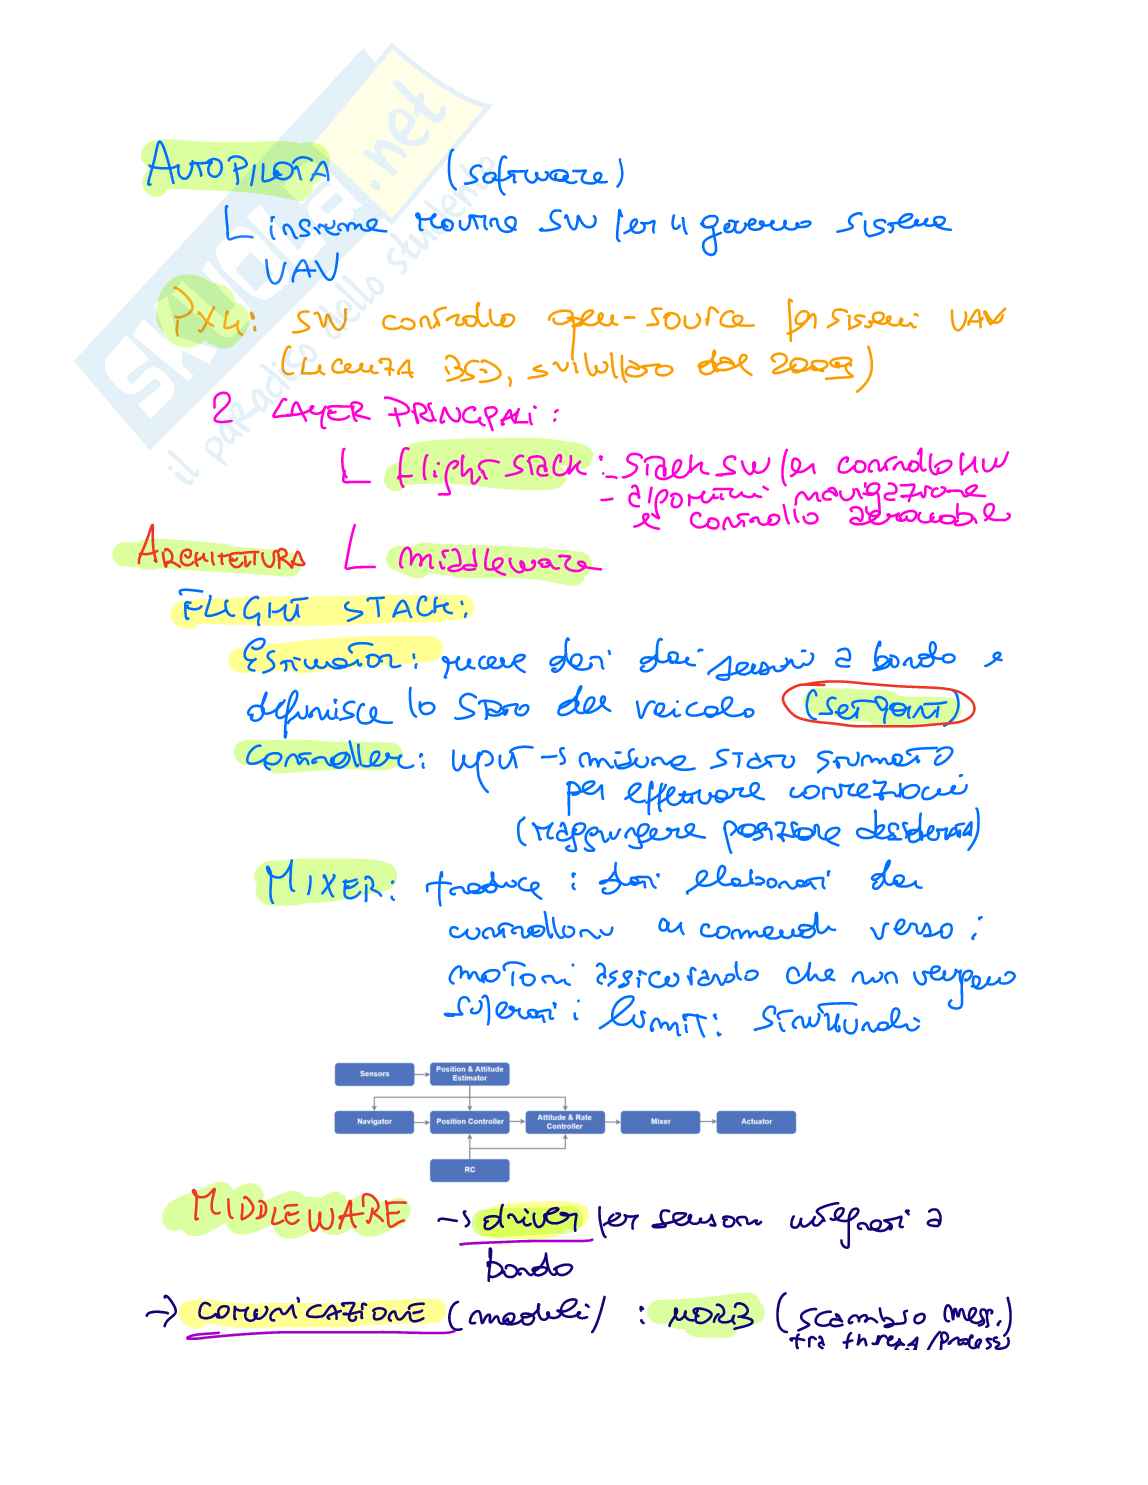 AUTOPILOTA (software)
insieme routine SW per il governo sistema
UAV
PX4: SW controllo open-source per sistemi UAV
(Licenza BSD, sviluppato dal 2009)
2 LAYER PRINCIPALI:
flight stack: - stack SW per controllo HW
- algoritmi navigazione
e controllo aeromobile
ARCHITETTURA middleware
FLIGHT STACK:
Estimator: riceve dati dai sensori a bordo e
definisce lo stato del veicolo (setpoint)
Controller: input -> misura stato stimato
per effettuare correzioni
(raggiungere posizione desiderata)
MIXER: traduce i dati elaborati dai
controllori in comandi verso i
motori assicurando che non vengano
superati i limiti strutturali
Sensors Position & Attitude Estimator
Navigator Position Controller Attitude & Rate Controller Mixer Actuator
RC
MIDDLEWARE -> driver per sensori integrati a
bordo
-> COMUNICAZIONE (moduli) : uORB (scambio mess.)
tra thread/Process
SKUOLA.net
il paradiso dello studente